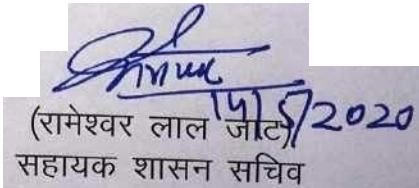 15/5/2020
(रामेश्वर लाल जाट)
सहायक शासन सचिव